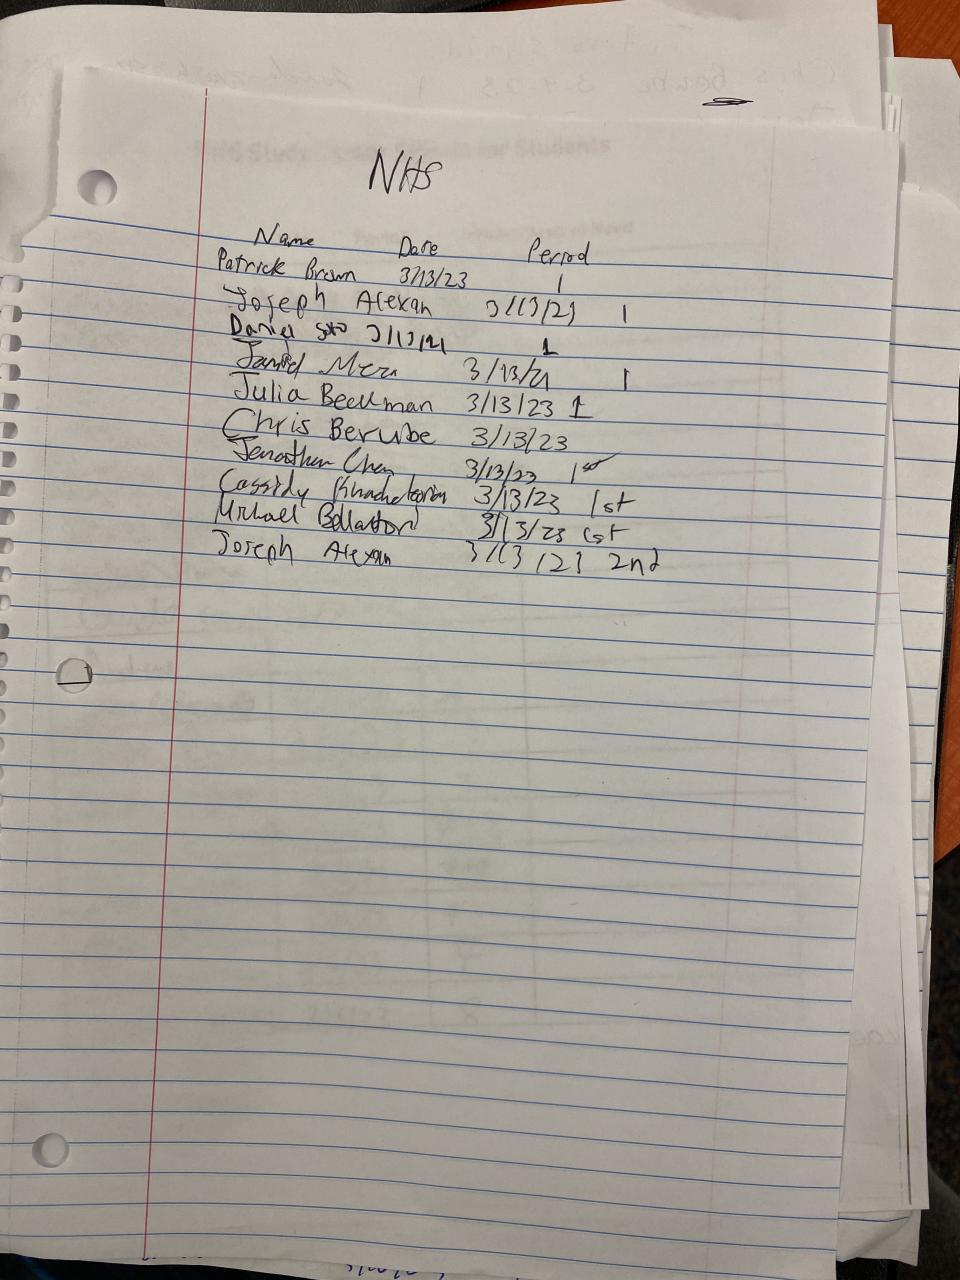 NHS
Name Date Period
Patrick Brown 3/13/23 1
Joseph Alexan 3/13/23 1
Daniel Soto 3/13/21 1
3/13/21 1
Julia Beckman 3/13/23 1
Chris Berube 3/13/23
Jonathan Chen 3/13/23 1st
Cassidy 3/13/23 1st
Michael 3/13/23 1st
Joseph Alexan 3/13/23 2nd